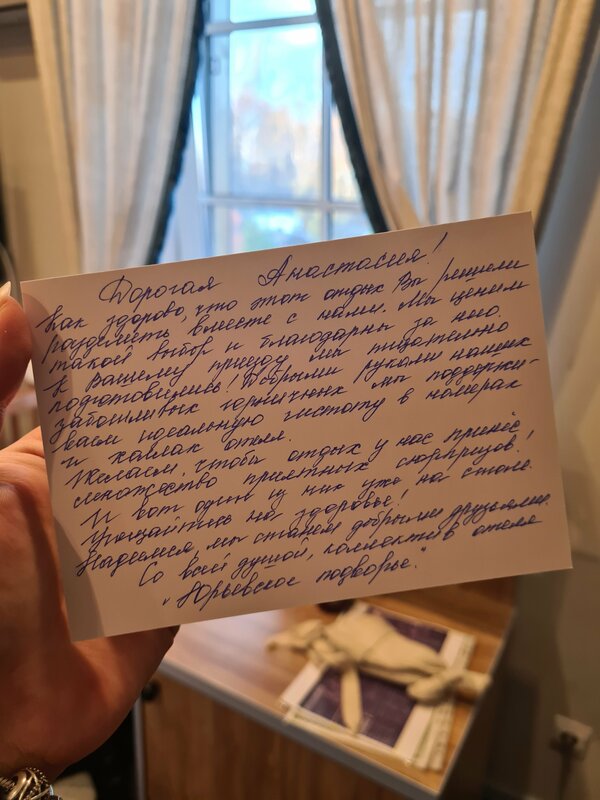 Дорогая Анастасия!
Как здорово, что этот отдых Вы решили
разделить вместе с нами. Мы ценим
такой выбор и благодарны за него.
К Вашему приезду мы тщательно
подготовились! Добрыми руками наших
заботливых горничных мы поддержи-
ваем идеальную чистоту в номерах
и холлах отеля.
Желаем, чтобы отдых у нас принёс
множество приятных сюрпризов!
И вот один из них уже на столе.
Угощайтесь на здоровье!
Надеемся, мы станем добрыми друзьями.
Со всей душой, коллектив отеля
"Юрьевское подворье".